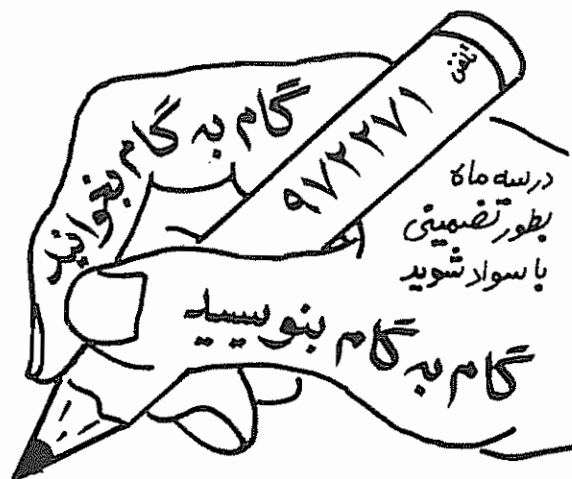 گام به گام بخوانید
تلفن
۹۷۲۲۷۱
در سه ماه
بطور تضمینی
با سواد شوید
گام به گام بنویسید